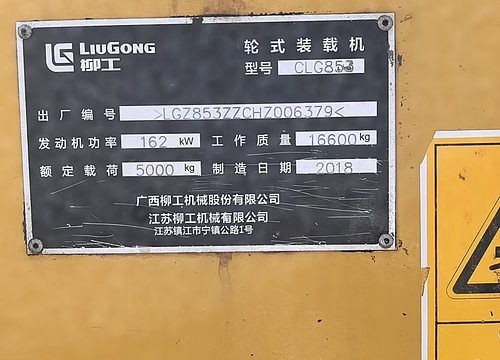 LiuGong
柳工
轮式装载机
型号 CLG853
出厂编号 >LGZ853ZZCHZ006379<
发动机功率 162 kW 工作质量 16600 kg
额定载荷 5000 kg 制造日期 2018
广西柳工机械股份有限公司
江苏柳工机械有限公司
江苏镇江市宁镇公路1号